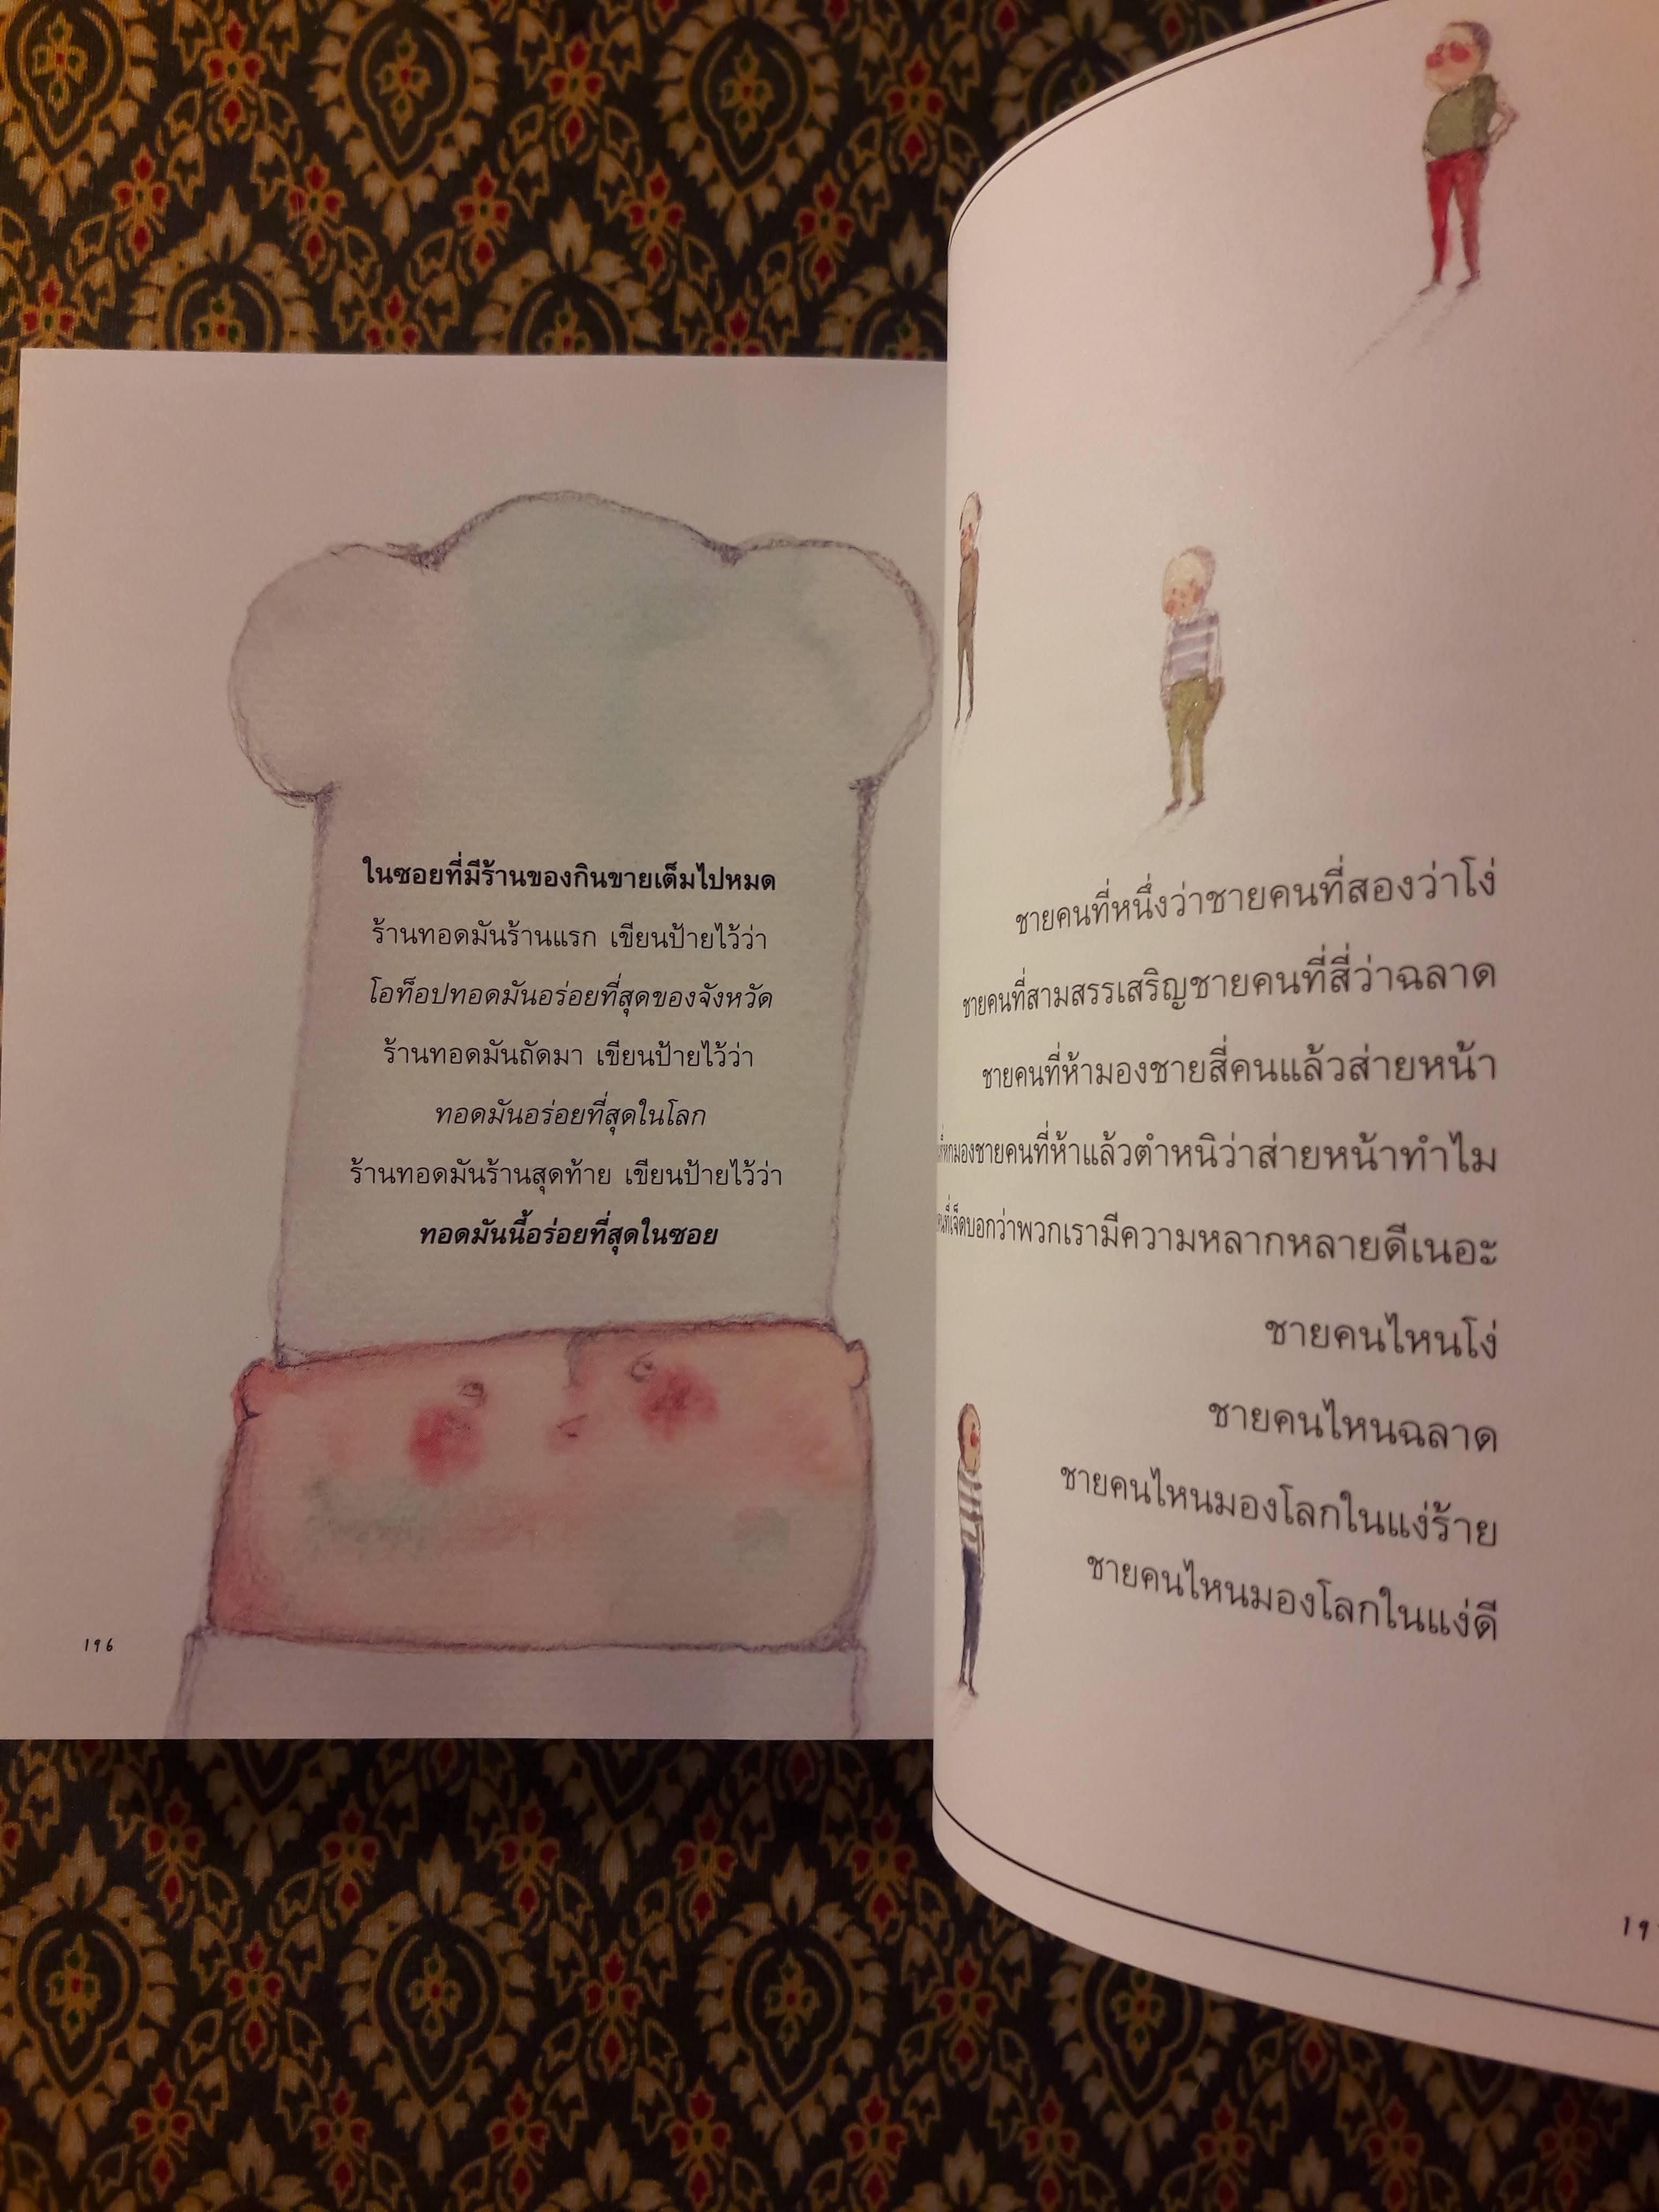 ในซอยที่มีร้านของกินขายเต็มไปหมด
ร้านทอดมันร้านแรก เขียนป้ายไว้ว่า
โอท็อปทอดมันอร่อยที่สุดของจังหวัด
ร้านทอดมันถัดมา เขียนป้ายไว้ว่า
ทอดมันอร่อยที่สุดในโลก
ร้านทอดมันร้านสุดท้าย เขียนป้ายไว้ว่า
ทอดมันนี้อร่อยที่สุดในซอย
196
ชายคนที่หนึ่งว่าชายคนที่สองว่าโง่
ชายคนที่สามสรรเสริญชายคนที่สี่ว่าฉลาด
ชายคนที่ห้ามองชายสี่คนแล้วส่ายหน้า
มองชายคนที่ห้าแล้วตำหนิว่าส่ายหน้าทำไม
ที่เจ็ดบอกว่าพวกเรามีความหลากหลายดีเนอะ
ชายคนไหนโง่
ชายคนไหนฉลาด
ชายคนไหนมองโลกในแง่ร้าย
ชายคนไหนมองโลกในแง่ดี